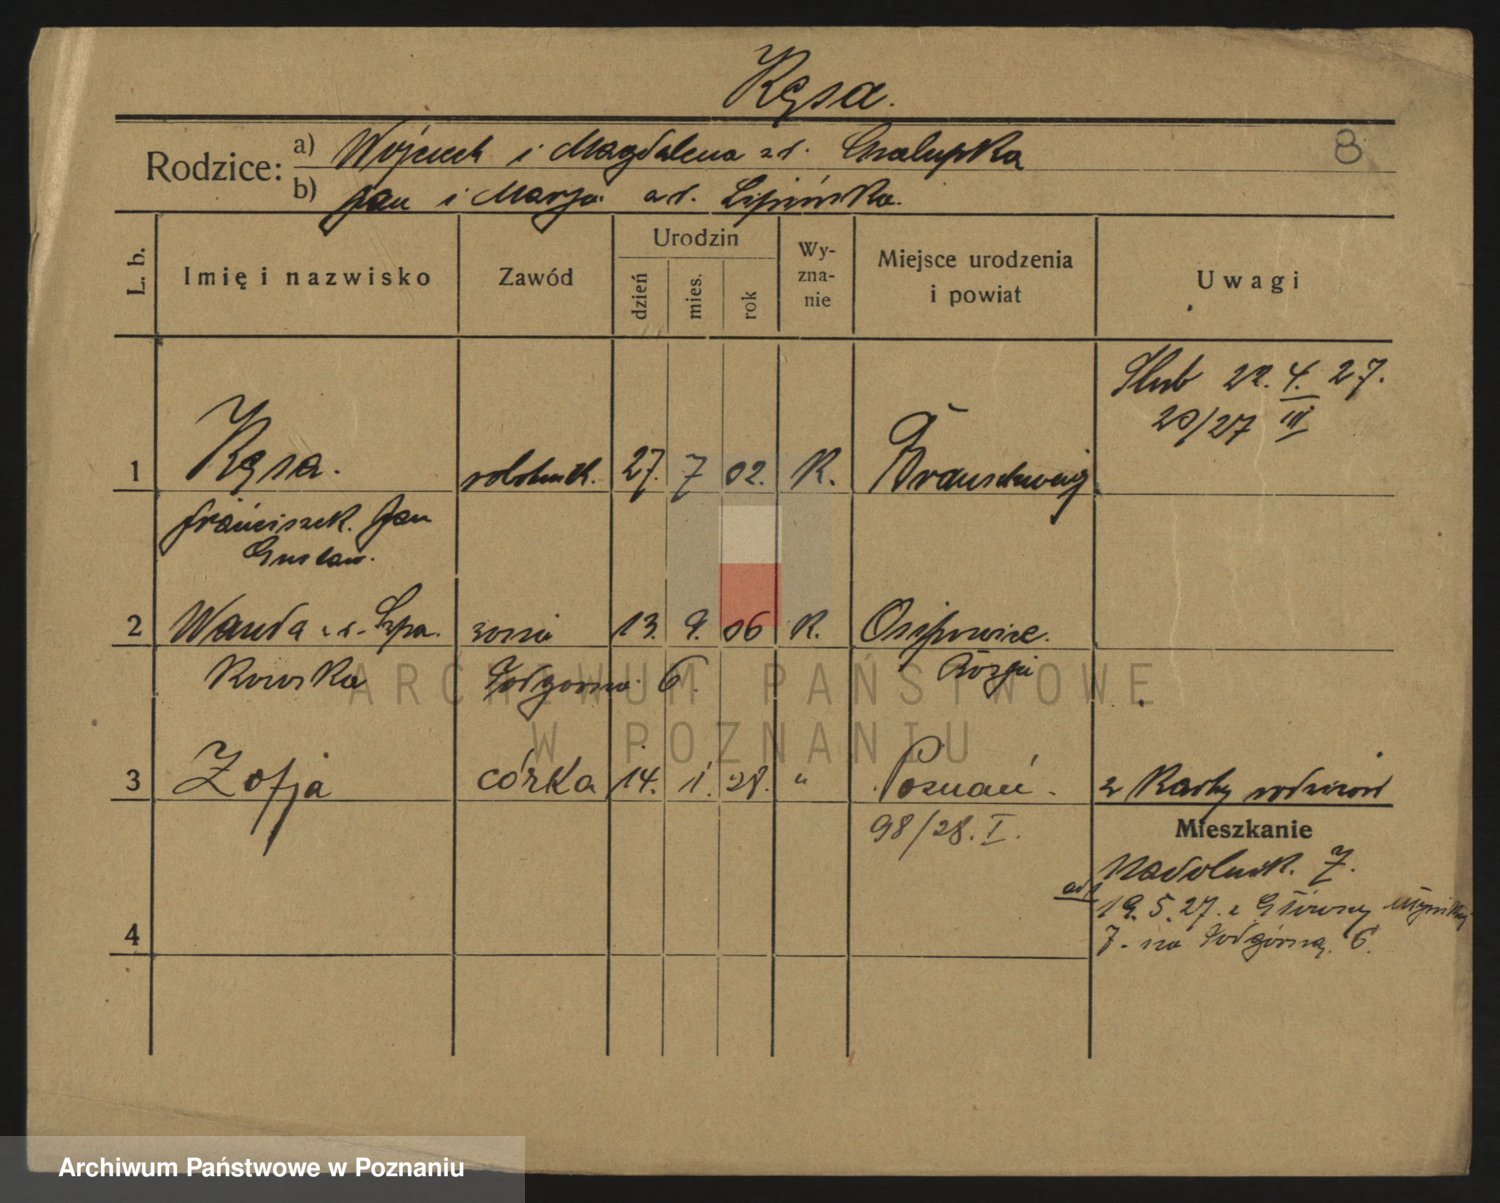 Kęsa.
8
Rodzice:
a) Wojciech i Magdalena z d. Chałupka
b) Jan i Marja z d. Lipińska.
L. b.
Imię i nazwisko
Zawód
Urodzin
dzień
mies.
rok
Wy-
zna-
nie
Miejsce urodzenia
i powiat
Uwagi
Ślub 22. 4. 27.
20/27 III
1 Kęsa. robotnik. 27. 7 02. K. Braunschweig
Franciszek Jan
Gustaw.
2 Wanda z d. Szpa- żona 13. 9. 06 K. Osipowicze.
kowska Podgórna 6. Rosja
ARCHIWUM PAŃSTWOWE
W POZNANIU
3 Zofja córka 14. 1. 28. " Poznań.
z karty rodziców
98/28. I.
Mieszkanie
Nadolnik. 7.
19. 5. 27. z Główny
7. na Podgórną. 6.
4
Archiwum Państwowe w Poznaniu